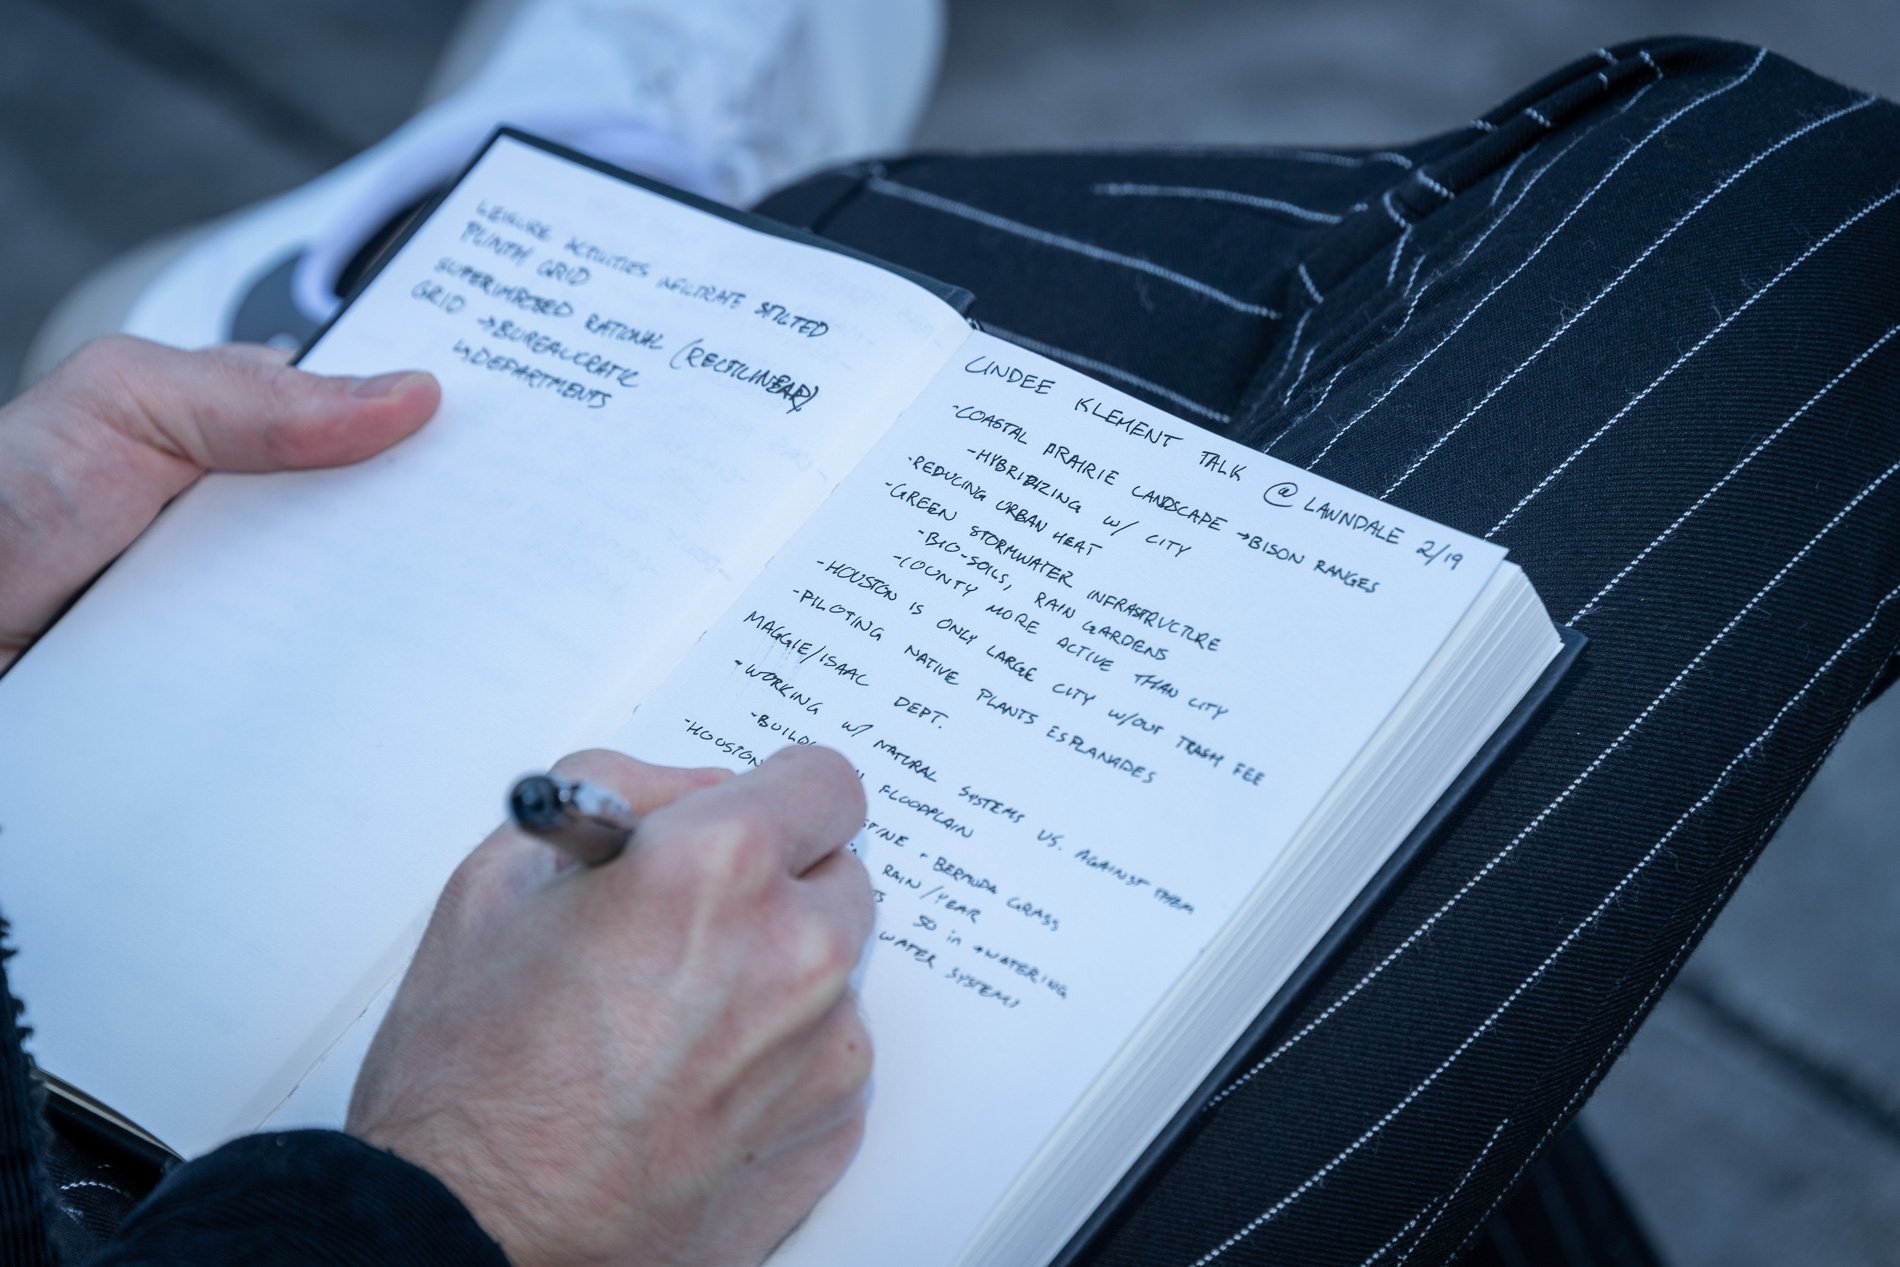 LEISURE ACTIVITIES INFILTRATE STILTED
PLINTH GRID
SUPERIMPOSED RATIONAL (RECTILINEAR)
GRID → BUREAUCRATIC
↳ DEPARTMENTS
LINDEE KLEMENT TALK @ LAWNDALE 2/19
-COASTAL PRAIRIE LANDSCAPE → BISON RANGES
-HYBRIDIZING W/ CITY
-REDUCING URBAN HEAT
-GREEN STORMWATER INFRASTRUCTURE
-BIO-SOILS, RAIN GARDENS
-COUNTY MORE ACTIVE THAN CITY
-HOUSTON IS ONLY LARGE CITY W/OUT TRASH FEE
-PILOTING NATIVE PLANTS ESPLANADES
MAGGIE/ISAAC DEPT.
-WORKING W/ NATURAL SYSTEMS VS. AGAINST THEM
FLOODPLAIN
-HOUSTON + BERMUDA GRASS
RAIN/YEAR
50 in → WATERING
WATER SYSTEMS